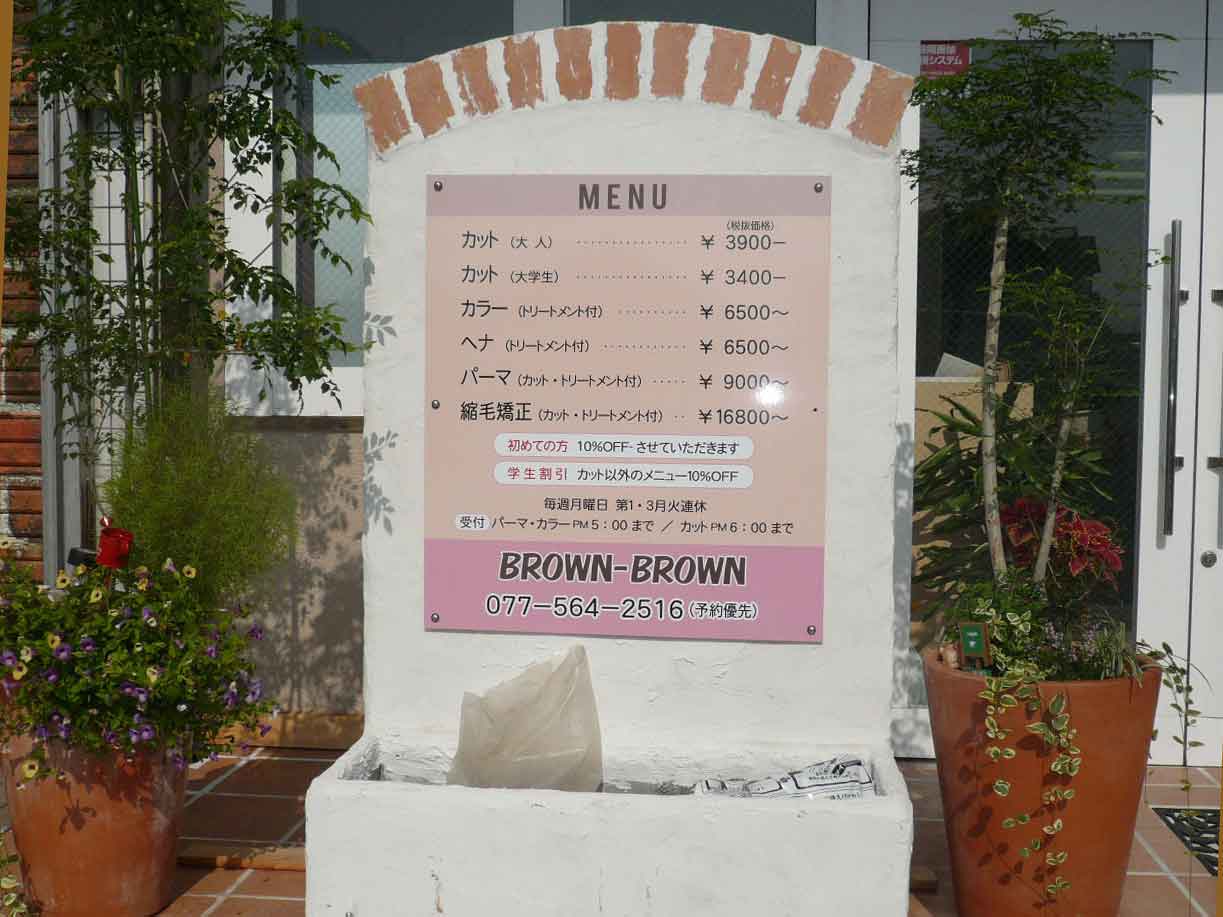 MENU
(税抜価格)
カット (大 人) ・・・・・・・・・・・・・・・・ ¥ 3900−
カット (大学生) ・・・・・・・・・・・・・・・・ ¥ 3400−
カラー (トリートメント付) ・・・・・・・・・・ ¥ 6500〜
ヘナ (トリートメント付) ・・・・・・・・・・・・ ¥ 6500〜
パーマ (カット・トリートメント付) ・・・・・ ¥ 9000〜
縮毛矯正 (カット・トリートメント付) ・・ ¥16800〜
初めての方 10%OFF-させていただきます
学生割引 カット以外のメニュー10%OFF
毎週月曜日 第1・3月火連休
受付 パーマ・カラー PM 5:00 まで / カット PM 6:00 まで
BROWN-BROWN
077−564−2516 (予約優先)